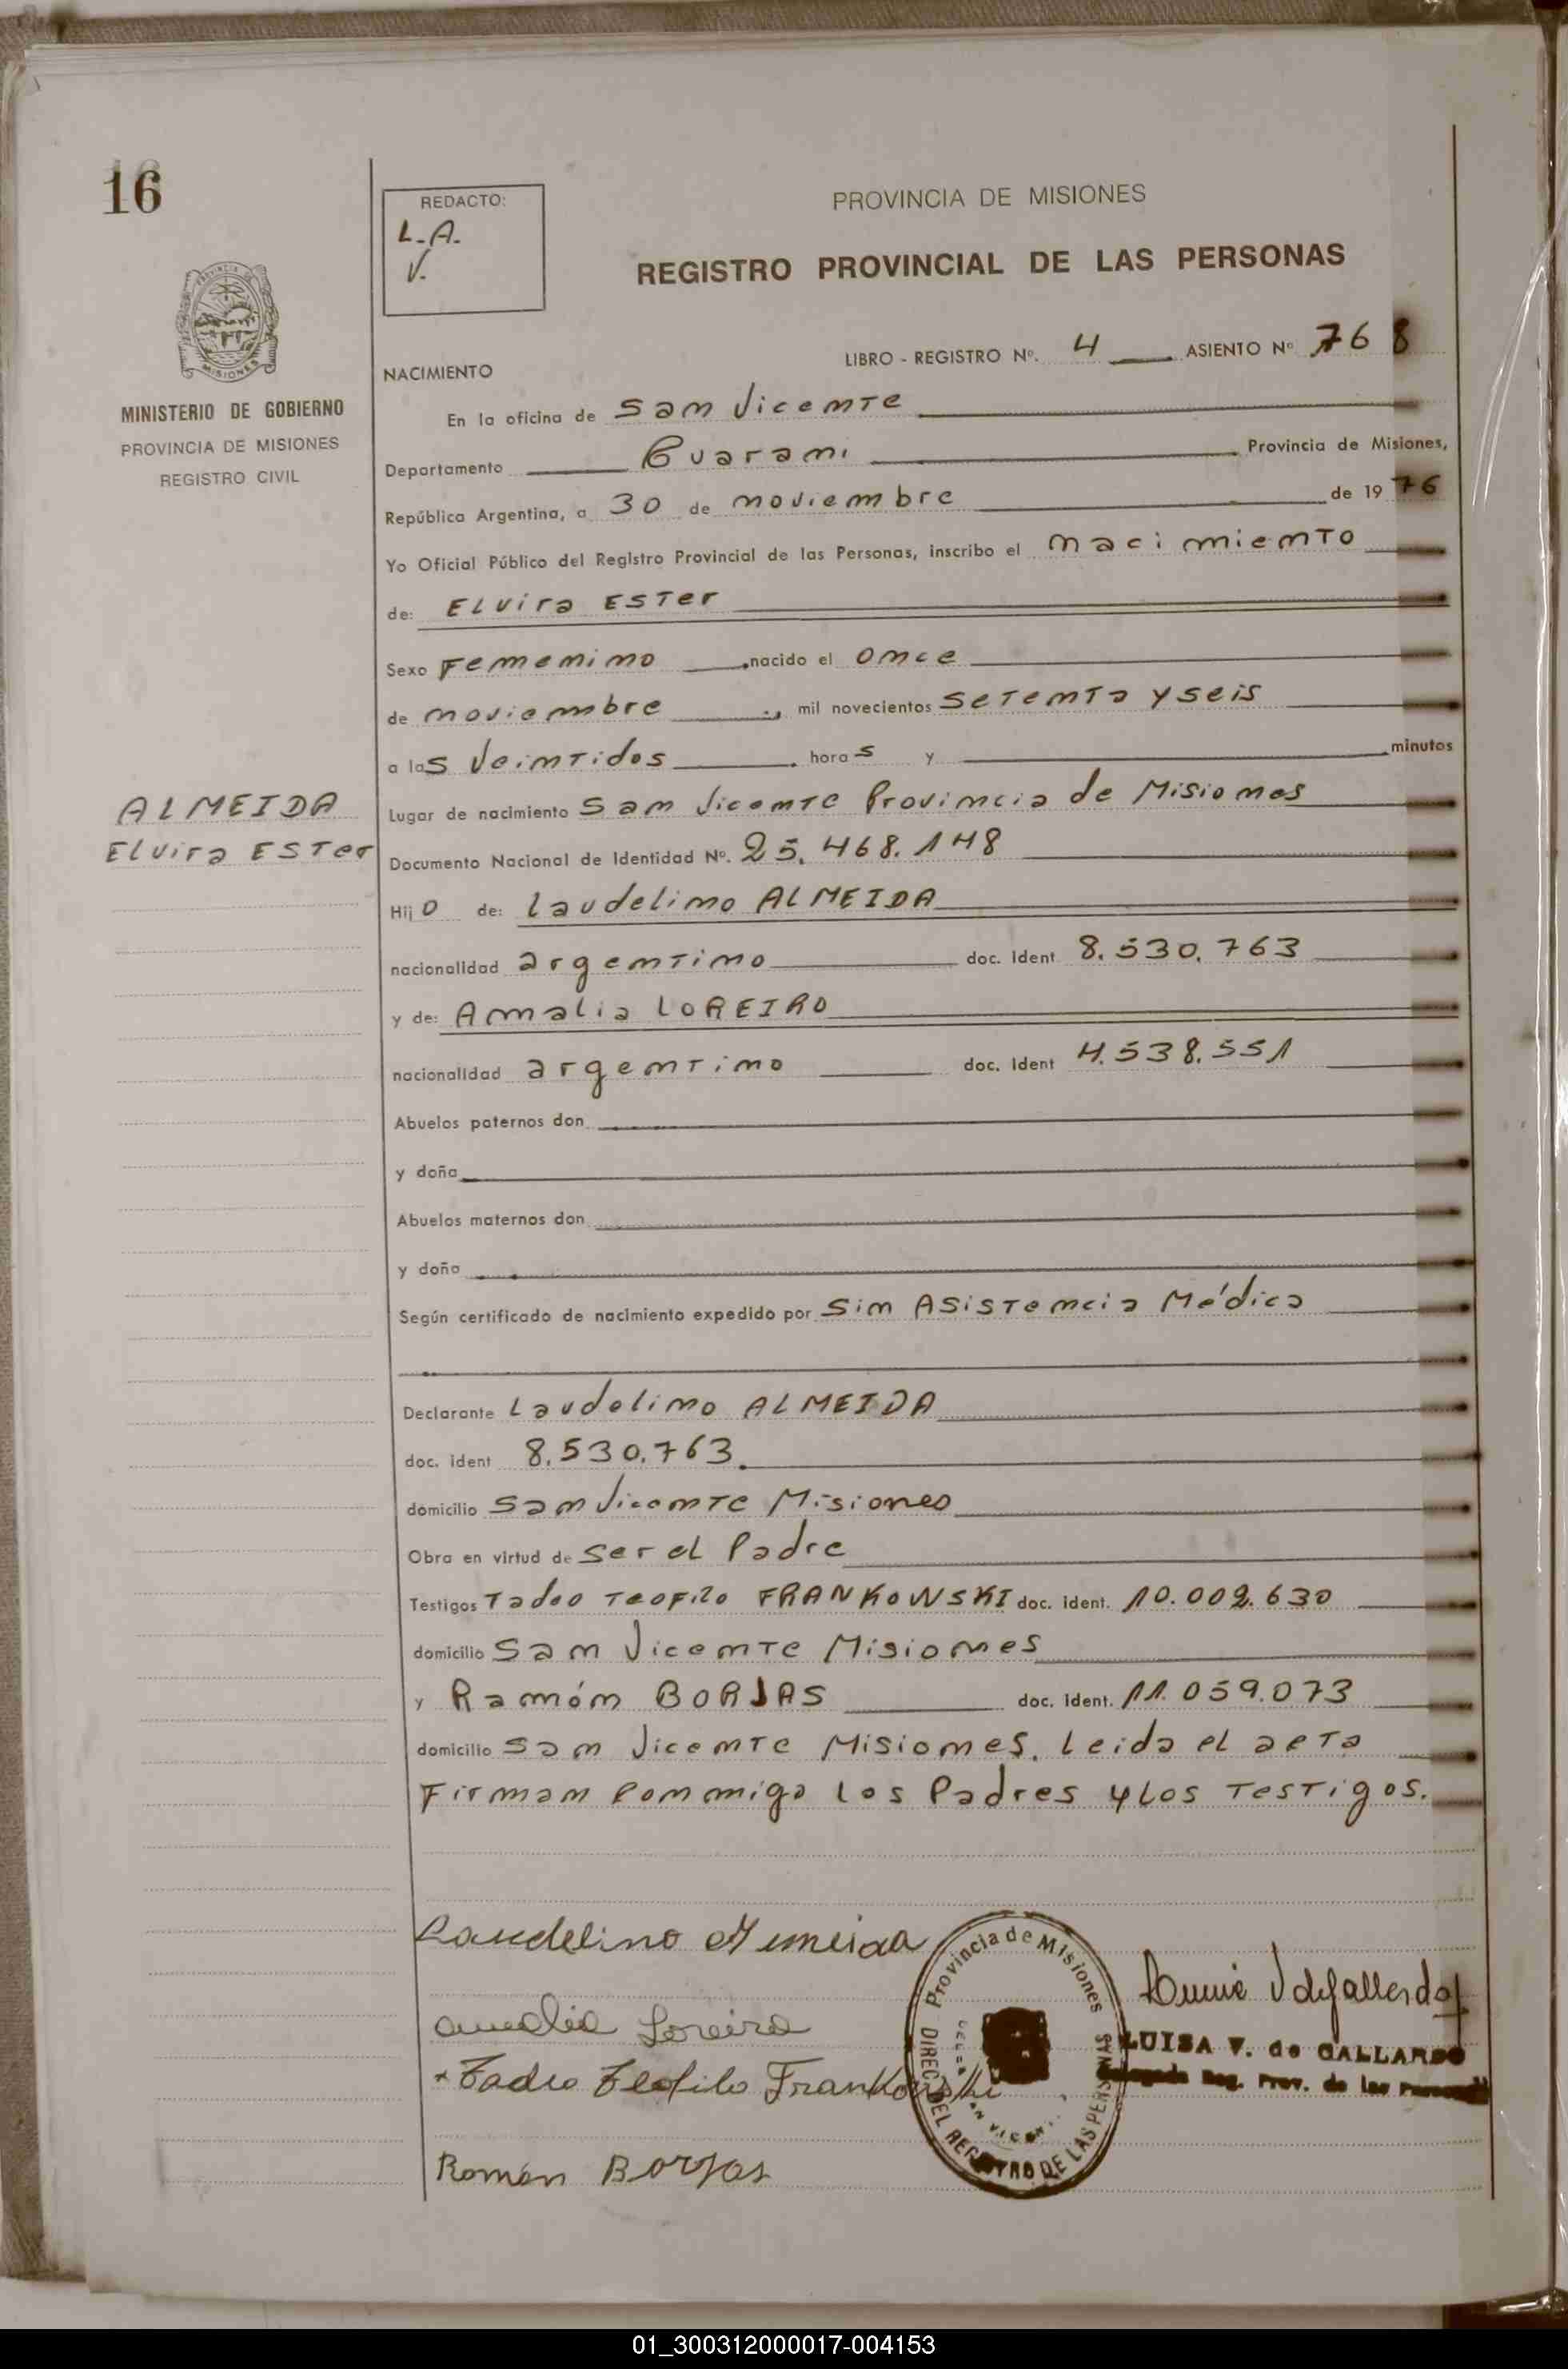 16
REDACTO:
L.A.
V.
PROVINCIA DE MISIONES
REGISTRO PROVINCIAL DE LAS PERSONAS
MISIONES
MINISTERIO DE GOBIERNO
PROVINCIA DE MISIONES
REGISTRO CIVIL
LIBRO - REGISTRO Nº. 4 ASIENTO Nº 768
NACIMIENTO
En la oficina de San Vicente
Departamento Guarani Provincia de Misiones,
República Argentina, a 30 de noviembre de 1976
Yo Oficial Público del Registro Provincial de las Personas, inscribo el nacimiento
de: Elvira Ester
Sexo Femenino nacido el once
de noviembre, mil novecientos setenta y seis
a las veintidos horas y minutos
ALMEIDA
Elvira Ester
Lugar de nacimiento San Vicente Provincia de Misiones
Documento Nacional de Identidad Nº. 25.468.148
Hijo de: Laudelino ALMEIDA
nacionalidad argentino doc. Ident 8.530.763
y de: Amalia LOREIRO
nacionalidad argentino doc. Ident 4.538.551
Abuelos paternos don
y doña
Abuelos maternos don
y doña
Según certificado de nacimiento expedido por Sin Asistencia Médica
Declarante Laudelino ALMEIDA
doc. ident 8.530.763.
domicilio San Vicente Misiones
Obra en virtud de ser el Padre
Testigos Tadeo Teofilo FRANKOWSKI doc. ident. 10.002.630
domicilio San Vicente Misiones
y Ramón BORJAS doc. ident. 11.059.073
domicilio San Vicente Misiones. Leida el acta
Firman conmigo los Padres y los Testigos.
Laudelino Almeida
Amalia Loreiro
Tadeo Teofilo Frankowski
Ramón Borjas
Provincia de Misiones
DIREC. DEL REGISTRO DE LAS PERSONAS
LUISA V. de GALLARDO
Delegada Reg. Prov. de las Personas
01_300312000017-004153